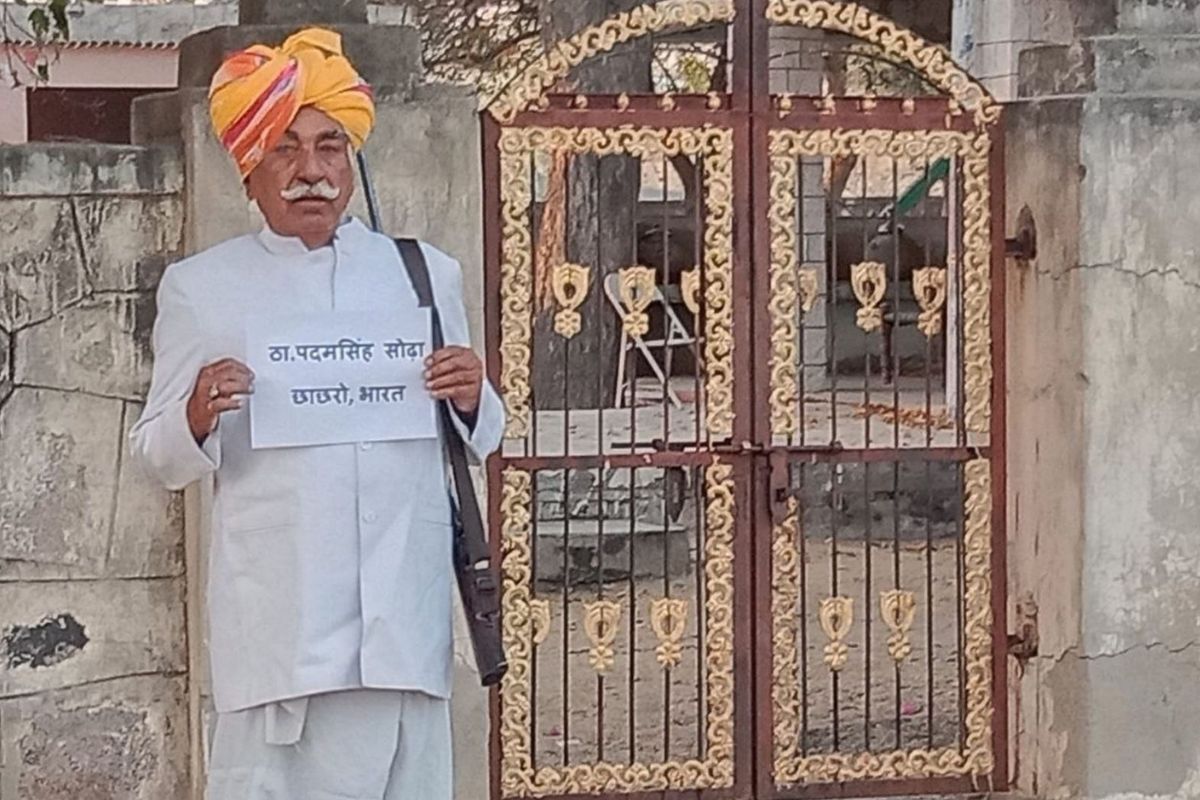 ठा.पदमसिंह सोढ़ा
छाछरो, भारत